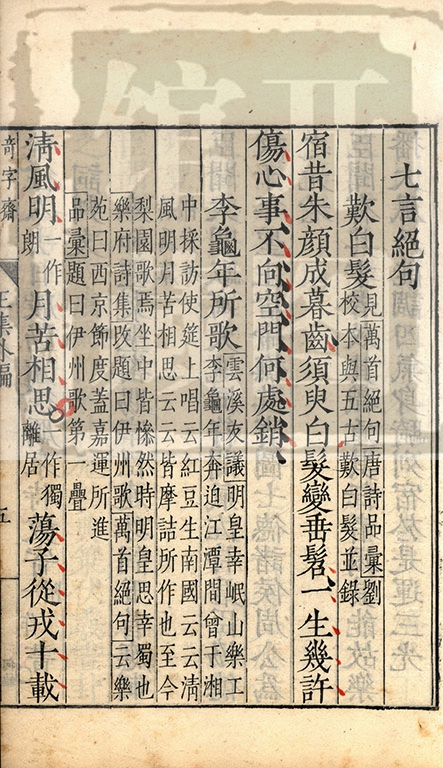 七言絕句
歎白髮見萬首絕句唐詩品彙劉
校本與五古歎白髮並錄
宿昔朱顏成暮齒須臾白髮變垂髫一生幾許
傷心事不向空門何處銷
李龜年所歌雲溪友議明皇幸岷山樂工
李龜年奔迫江潭間曾于湘
中採訪使筵上唱云紅豆生南國云云淸
風明月苦相思云云皆摩詰所作也至今
梨園歌焉坐中皆慘然時明皇思幸蜀也
樂府詩集改題曰伊州歌萬首絕句云樂
苑曰西京節度蓋嘉運所進
品彙題曰伊州歌第一疊
淸風明一作朗月苦相思一作獨離居蕩子從戎十載
奇字齋
王集外編
五